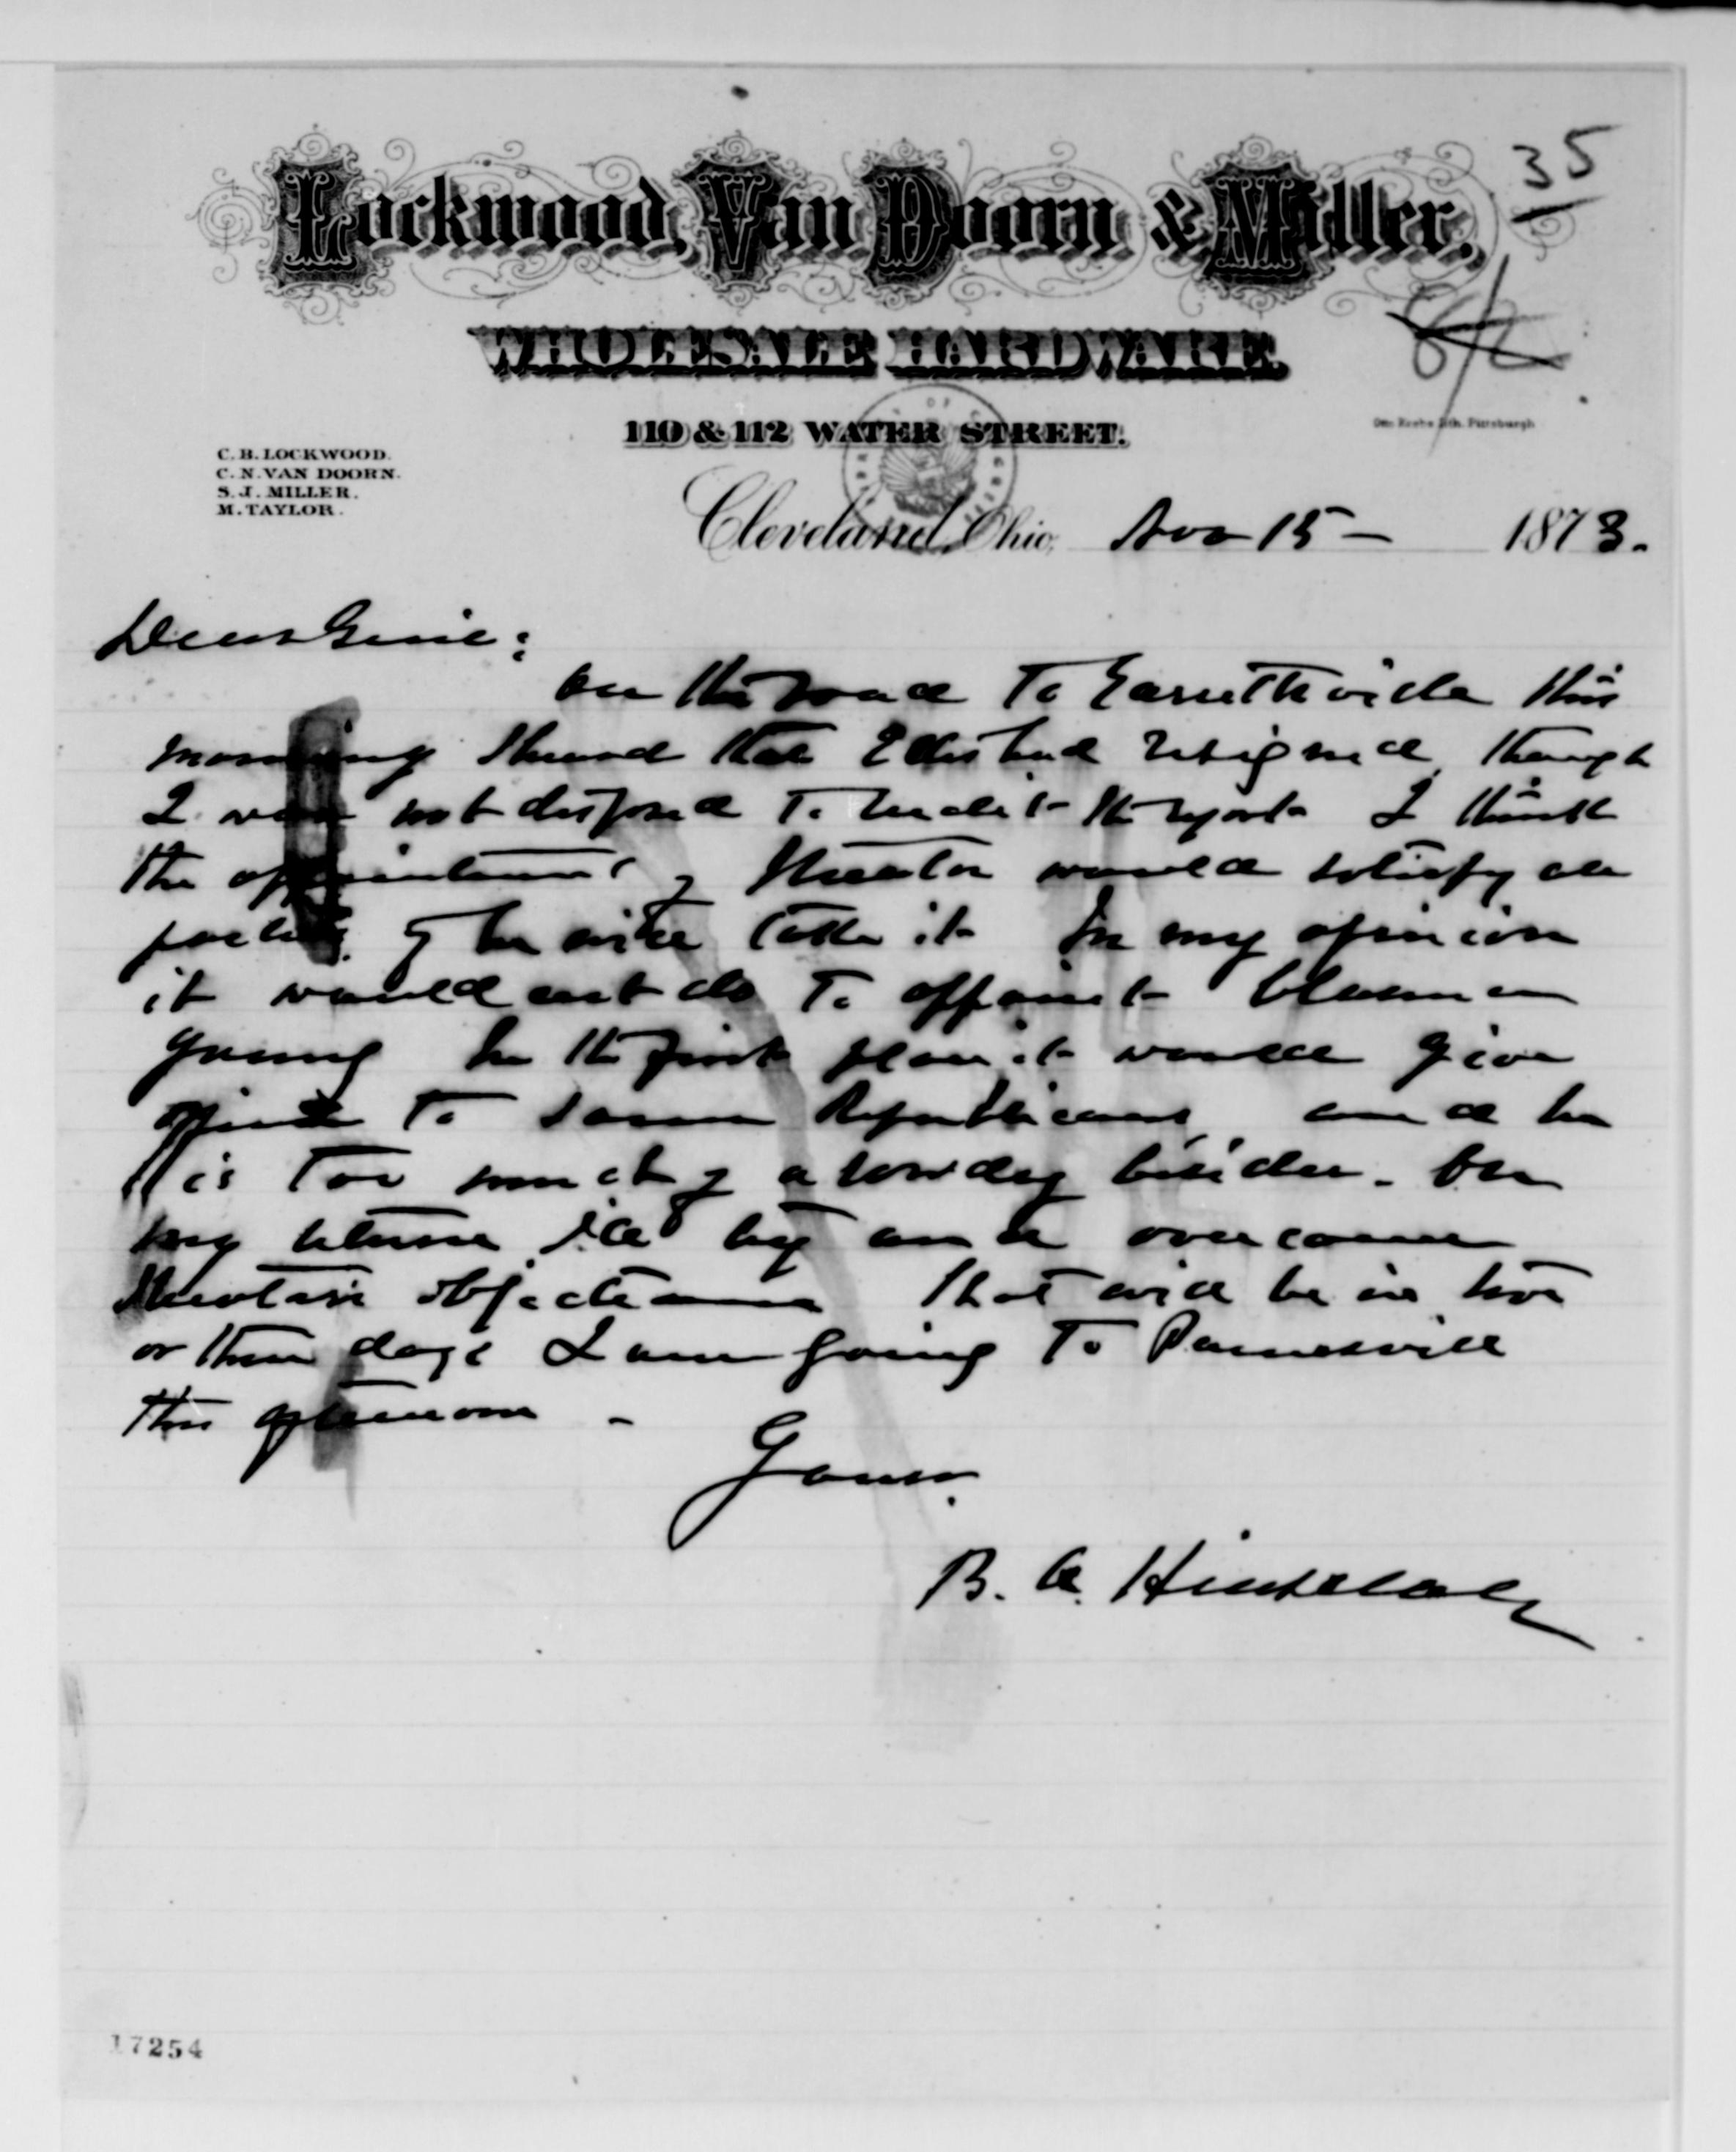 35
Lockwood, Van Doorn & Miller.
WHOLESALE HARDWARE.
110 & 112 WATER STREET.
Otto Krebs Lith. Pittsburgh
C. B. LOCKWOOD.
C. N. VAN DOORN.
S. J. MILLER.
M. TAYLOR.
Cleveland, Ohio, Nov 15 - 1873.
Dear Genl:
On the road to Garrettsville this
morning I heard that Ellis had resigned, though
I was not disposed to credit the report I think
the appointment of would satisfy all
parties if he will take it In my opinion
it would not do to appoint
Young In the first place it would give
offense to some Republicans, and he
is too much of a rowdy besides. On
my return I'll try and overcome
objections That will be in two
or three days I am going to Painesville
this afternoon -
Yours.
B. A. Hinsdale
17254